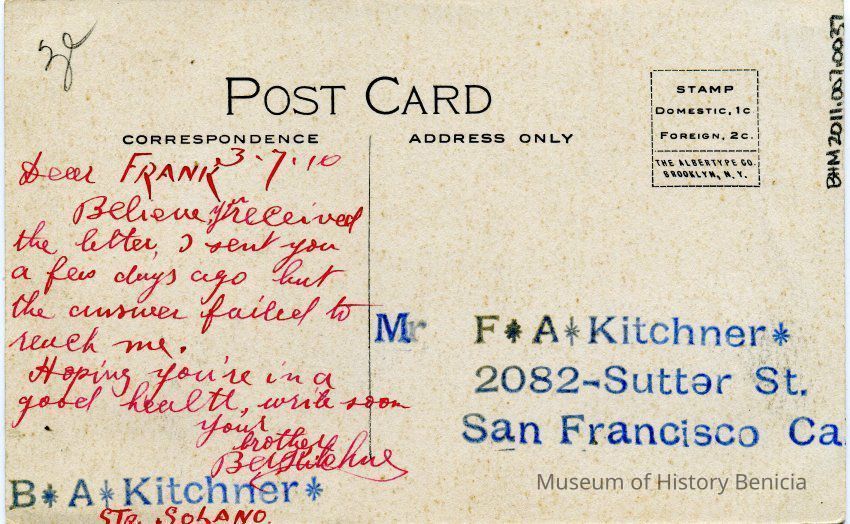 POST CARD
CORRESPONDENCE
ADDRESS ONLY
STAMP
DOMESTIC, 1c.
FOREIGN, 2c.
THE ALBERTYPE CO.
BROOKLYN, N.Y.
BHM 2011.007.0037
3-7-10
Dear FRANK
Believe, you received
the letter, I sent you
a few days ago but
the answer failed to
reach me.
Hoping you're in a
good health, write soon
Your
brother
B*A*Kitchner*
STR. SOLANO.
Mr F*A*Kitchner*
2082-Sutter St.
San Francisco Ca
Museum of History Benicia